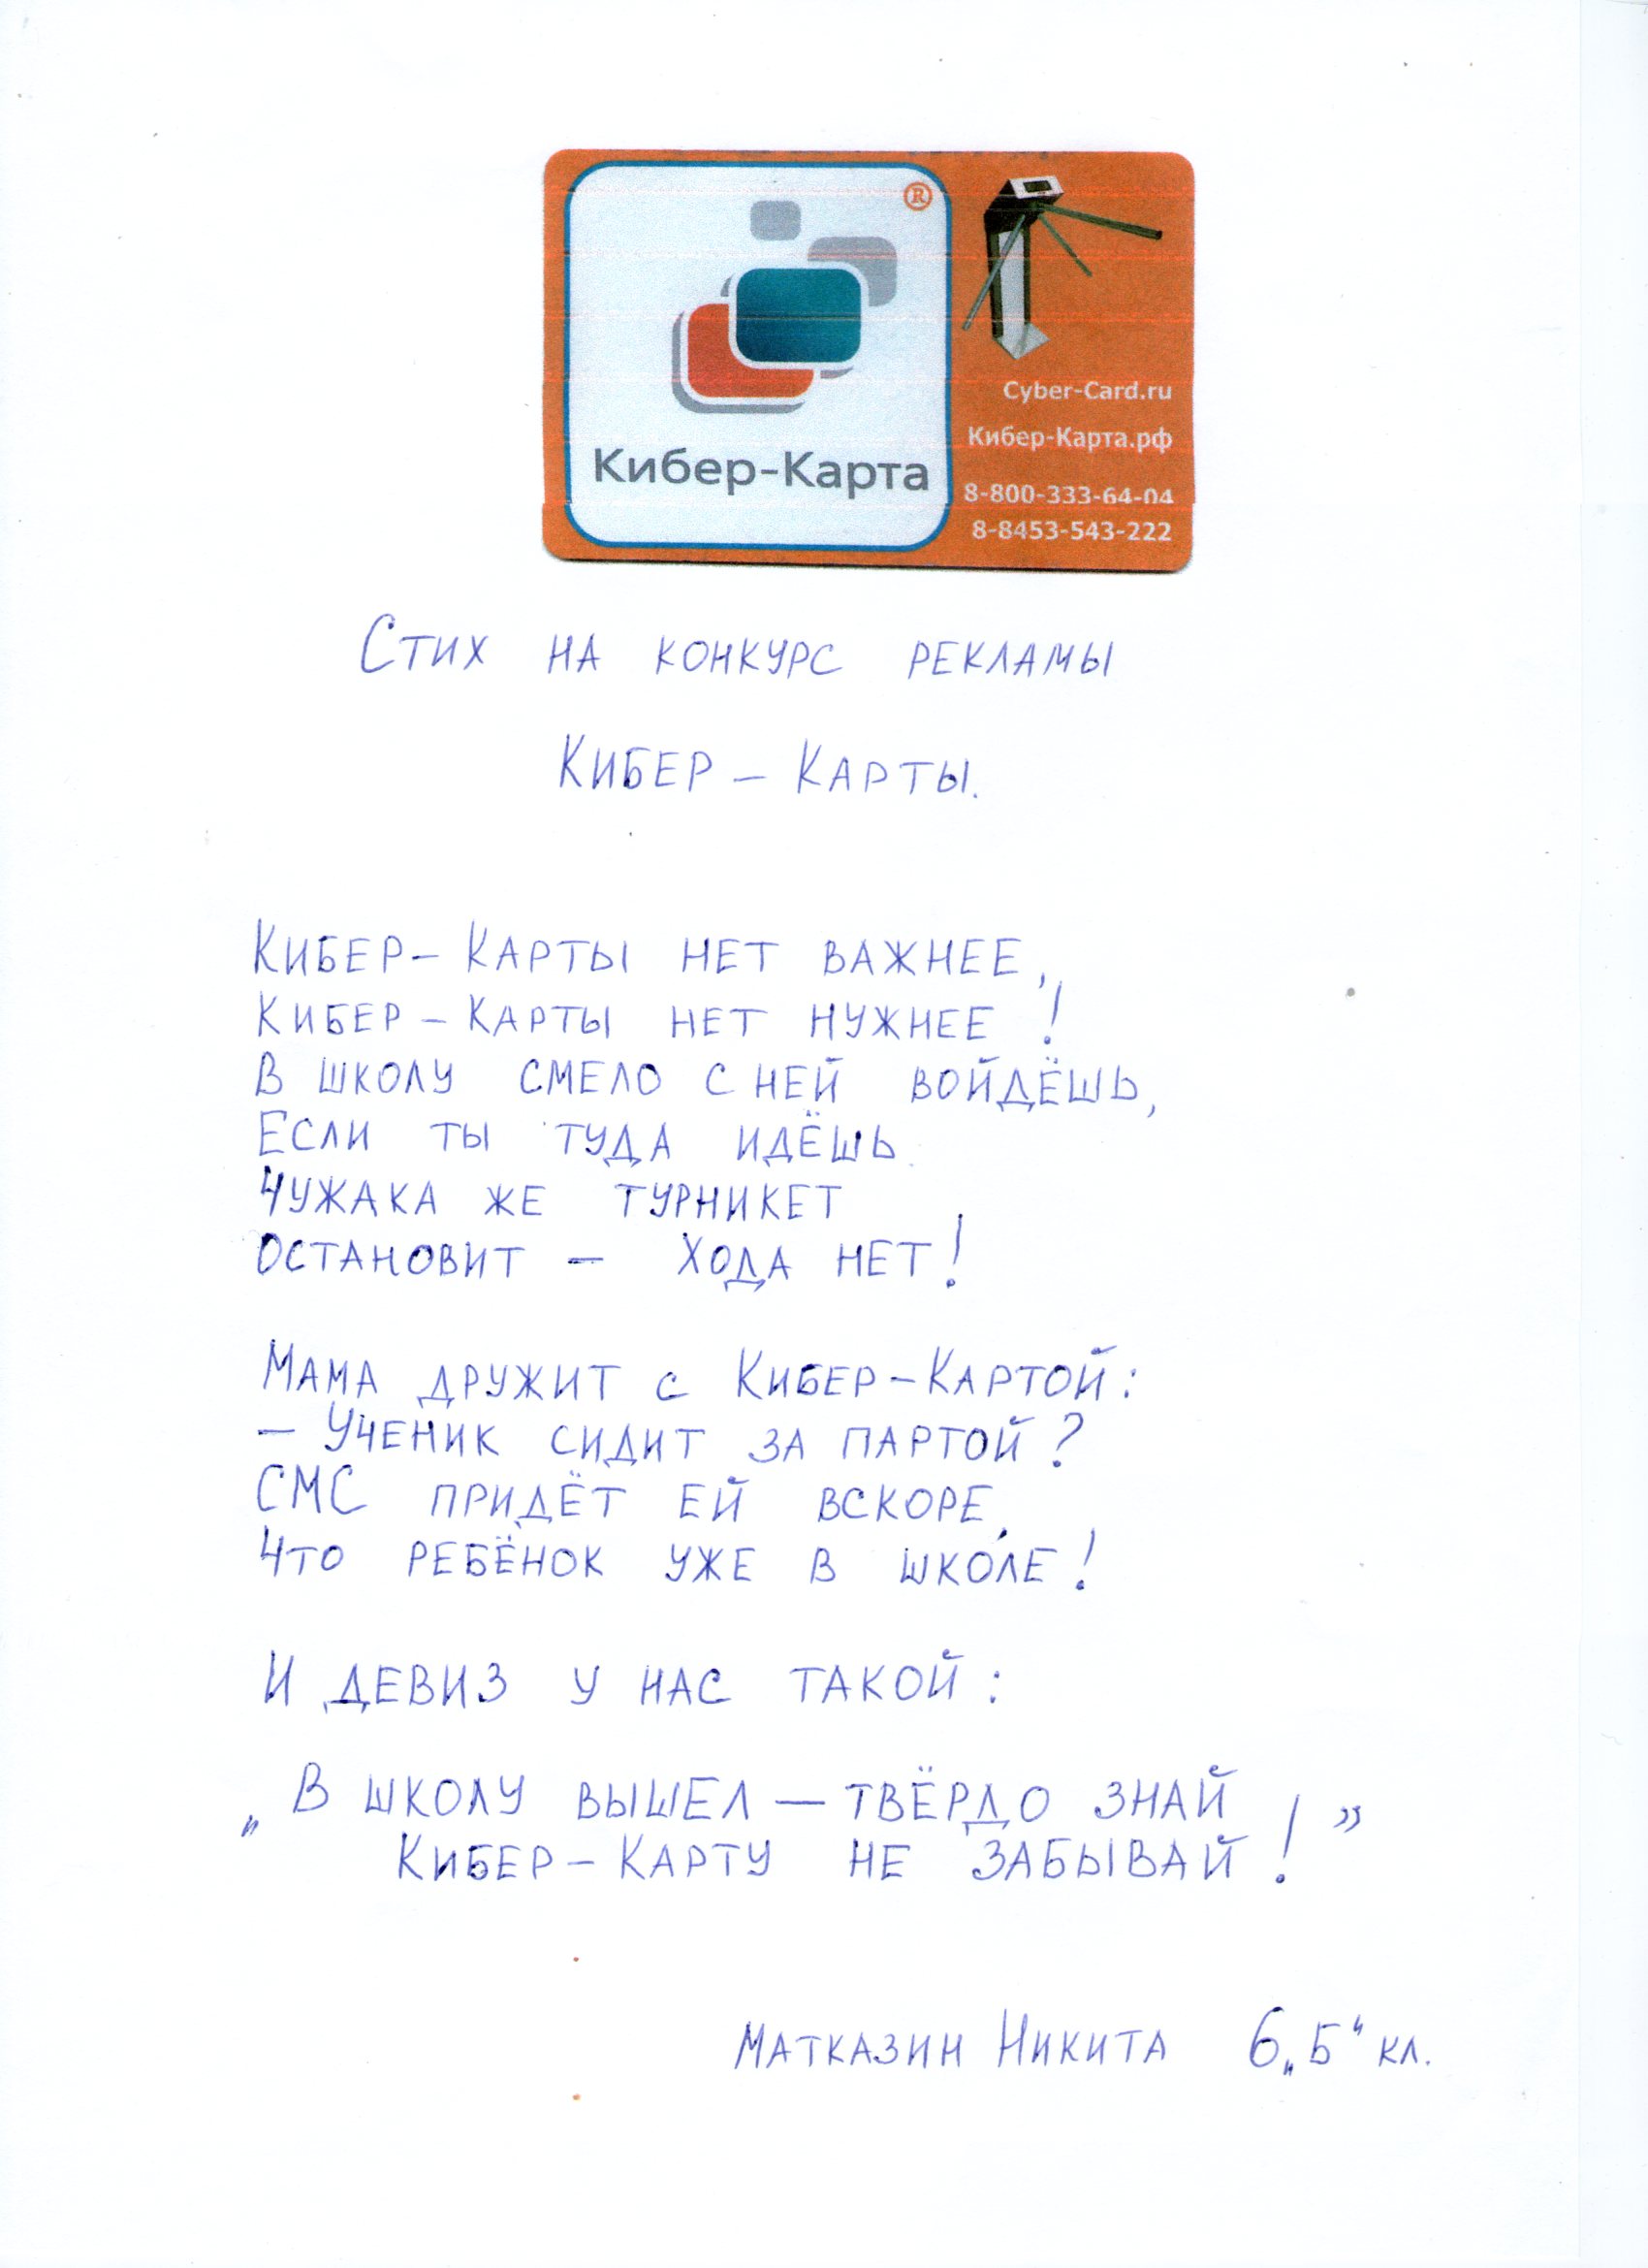 ®
Кибер-Карта
Cyber-Card.ru
Кибер-Карта.рф
8-800-333-64-04
8-8453-543-222
Стих на конкурс рекламы
Кибер – Карты.
Кибер – Карты нет важнее,
Кибер – Карты нет нужнее!
В школу смело с ней войдёшь,
Если ты туда идёшь.
Чужака же турникет
Остановит – хода нет!
Мама дружит с Кибер – Картой:
– Ученик сидит за партой?
СМС придёт ей вскоре,
Что ребёнок уже в школе!
И девиз у нас такой:
„В школу вышел – твёрдо знай
Кибер – Карту не забывай!”
Матказин Никита 6„Б“ кл.